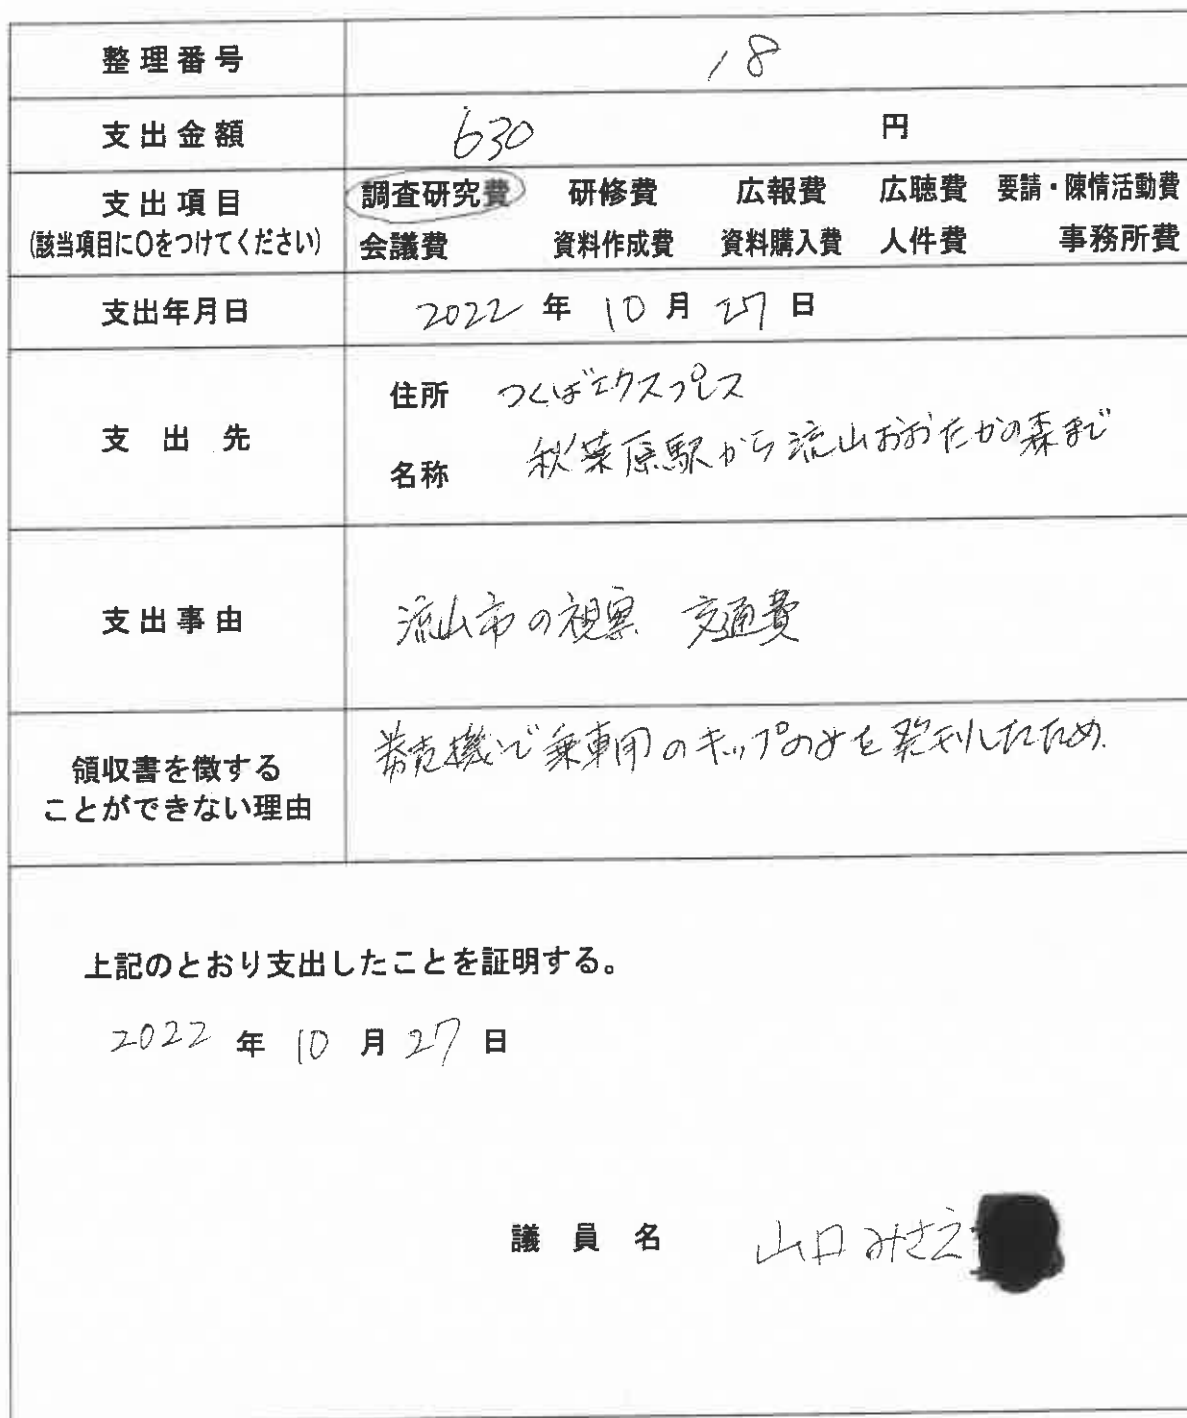 整理番号 18
支出金額 630 円
支出項目
(該当項目に○をつけてください)
調査研究費 研修費 広報費 広聴費 要請・陳情活動費
会議費 資料作成費 資料購入費 人件費 事務所費
支出年月日 2022 年 10 月 27 日
支出先
住所 つくばエクスプレス
名称 秋葉原駅から流山おおたかの森まで
支出事由 流山市の視察 交通費
領収書を徴する
ことができない理由
券売機で乗車用のキップのみを発刊したため.
上記のとおり支出したことを証明する。
2022 年 10 月 27 日
議員名 山口みさえ